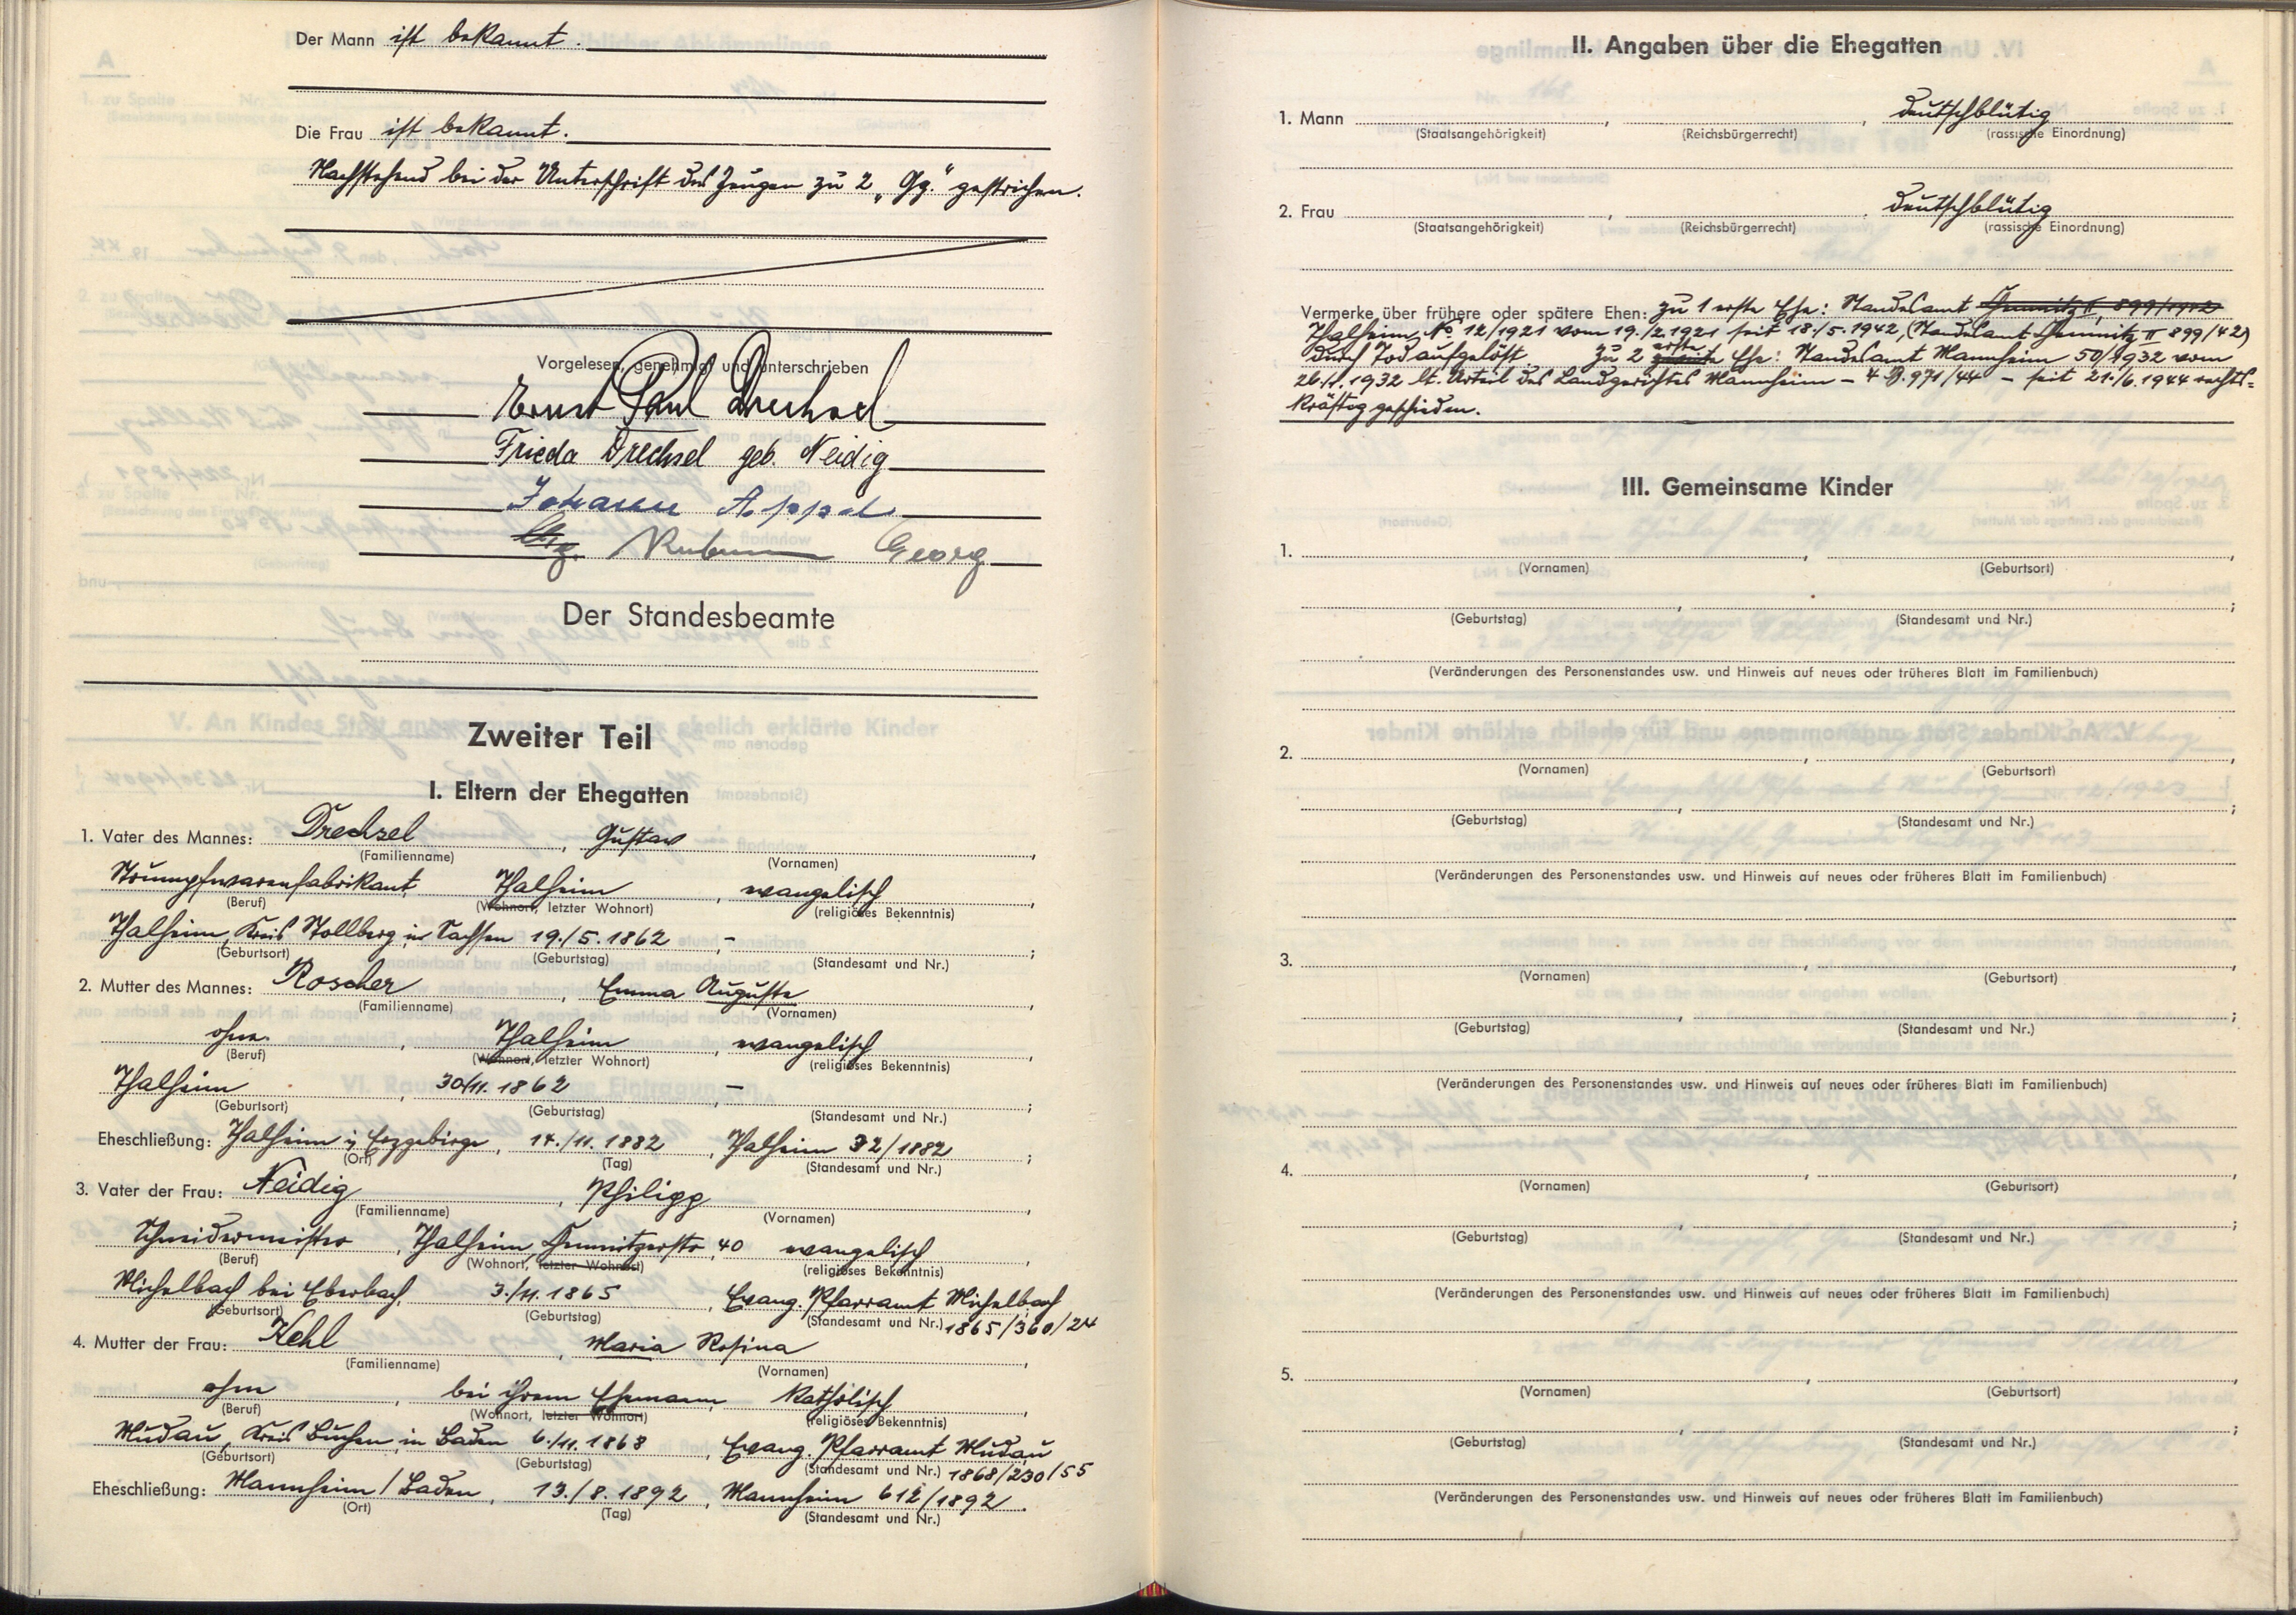 Der Mann ist bekannt.
Die Frau ist bekannt.
Nachstehend bei der Unterschrift des Zeugen zu 2 „Gg." gestrichen.
Vorgelesen, genehmigt und unterschrieben
Ernst Paul Drechsel
Frieda Drechsel geb. Neidig
Johann Appel
Gg. Georg
Der Standesbeamte
Zweiter Teil
I. Eltern der Ehegatten
1. Vater des Mannes: Drechsel, Gustav
(Familienname) (Vornamen)
Strumpfwarenfabrikant, Thalheim, evangelisch,
(Beruf) (Wohnort, letzter Wohnort) (religiöses Bekenntnis)
Thalheim, Kreis Stollberg in Sachsen 19./5.1862, - ;
(Geburtsort) (Geburtstag) (Standesamt und Nr.)
2. Mutter des Mannes: Roscher, Emma Auguste,
(Familienname) (Vornamen)
ohne, Thalheim, evangelisch,
(Beruf) (Wohnort, letzter Wohnort) (religiöses Bekenntnis)
Thalheim, 30/11.1862, - ;
(Geburtsort) (Geburtstag) (Standesamt und Nr.)
Eheschließung: Thalheim i. Erzgebirge, 14./11.1882, Thalheim 32/1882 ;
(Ort) (Tag) (Standesamt und Nr.)
3. Vater der Frau: Neidig, Philipp,
(Familienname) (Vornamen)
Schneidermeister, Thalheim, Chemnitzerstr. 40 evangelisch,
(Beruf) (Wohnort, letzter Wohnort) (religiöses Bekenntnis)
Michelbach bei Eberbach, 3./11.1865, Evang. Pfarramt Michelbach
(Geburtsort) (Geburtstag) (Standesamt und Nr.) 1865/360/24
4. Mutter der Frau: Kehl, Maria Rosina,
(Familienname) (Vornamen)
ohne, bei ihrem Ehemann, katholisch,
(Beruf) (Wohnort, letzter Wohnort) (religiöses Bekenntnis)
Mudau, Kreis Buchen in Baden 6./11.1868, Evang. Pfarramt Mudau
(Geburtsort) (Geburtstag) (Standesamt und Nr.) 1868/230/55
Eheschließung: Mannheim / Baden, 13./8.1892, Mannheim 612/1892.
(Ort) (Tag) (Standesamt und Nr.)
II. Angaben über die Ehegatten
1. Mann , , deutschblütig
(Staatsangehörigkeit) (Reichsbürgerrecht) (rassische Einordnung)
2. Frau , , deutschblütig
(Staatsangehörigkeit) (Reichsbürgerrecht) (rassische Einordnung)
Vermerke über frühere oder spätere Ehen: Zu 1 erste Ehe: Standesamt Chemnitz II, 899/1942
Thalheim, No 12/1921 vom 19./2.1921 seit 18./5.1942, (Standesamt Chemnitz II 899/42)
durch Tod aufgelöst Zu 2 zweite erste Ehe: Standesamt Mannheim 50/1932 vom
26./1.1932 lt. Urteil des Landgerichtes Mannheim - 4 R.971/44 - seit 21./6.1944 rechts-
kräftig geschieden.
III. Gemeinsame Kinder
1. , ,
(Vornamen) (Geburtsort)
, ;
(Geburtstag) (Standesamt und Nr.)
(Veränderungen des Personenstandes usw. und Hinweis auf neues oder früheres Blatt im Familienbuch)
2. , ,
(Vornamen) (Geburtsort)
, ;
(Geburtstag) (Standesamt und Nr.)
(Veränderungen des Personenstandes usw. und Hinweis auf neues oder früheres Blatt im Familienbuch)
3. , ,
(Vornamen) (Geburtsort)
, ;
(Geburtstag) (Standesamt und Nr.)
(Veränderungen des Personenstandes usw. und Hinweis auf neues oder früheres Blatt im Familienbuch)
4. , ,
(Vornamen) (Geburtsort)
, ;
(Geburtstag) (Standesamt und Nr.)
(Veränderungen des Personenstandes usw. und Hinweis auf neues oder früheres Blatt im Familienbuch)
5. , ,
(Vornamen) (Geburtsort)
, ;
(Geburtstag) (Standesamt und Nr.)
(Veränderungen des Personenstandes usw. und Hinweis auf neues oder früheres Blatt im Familienbuch)